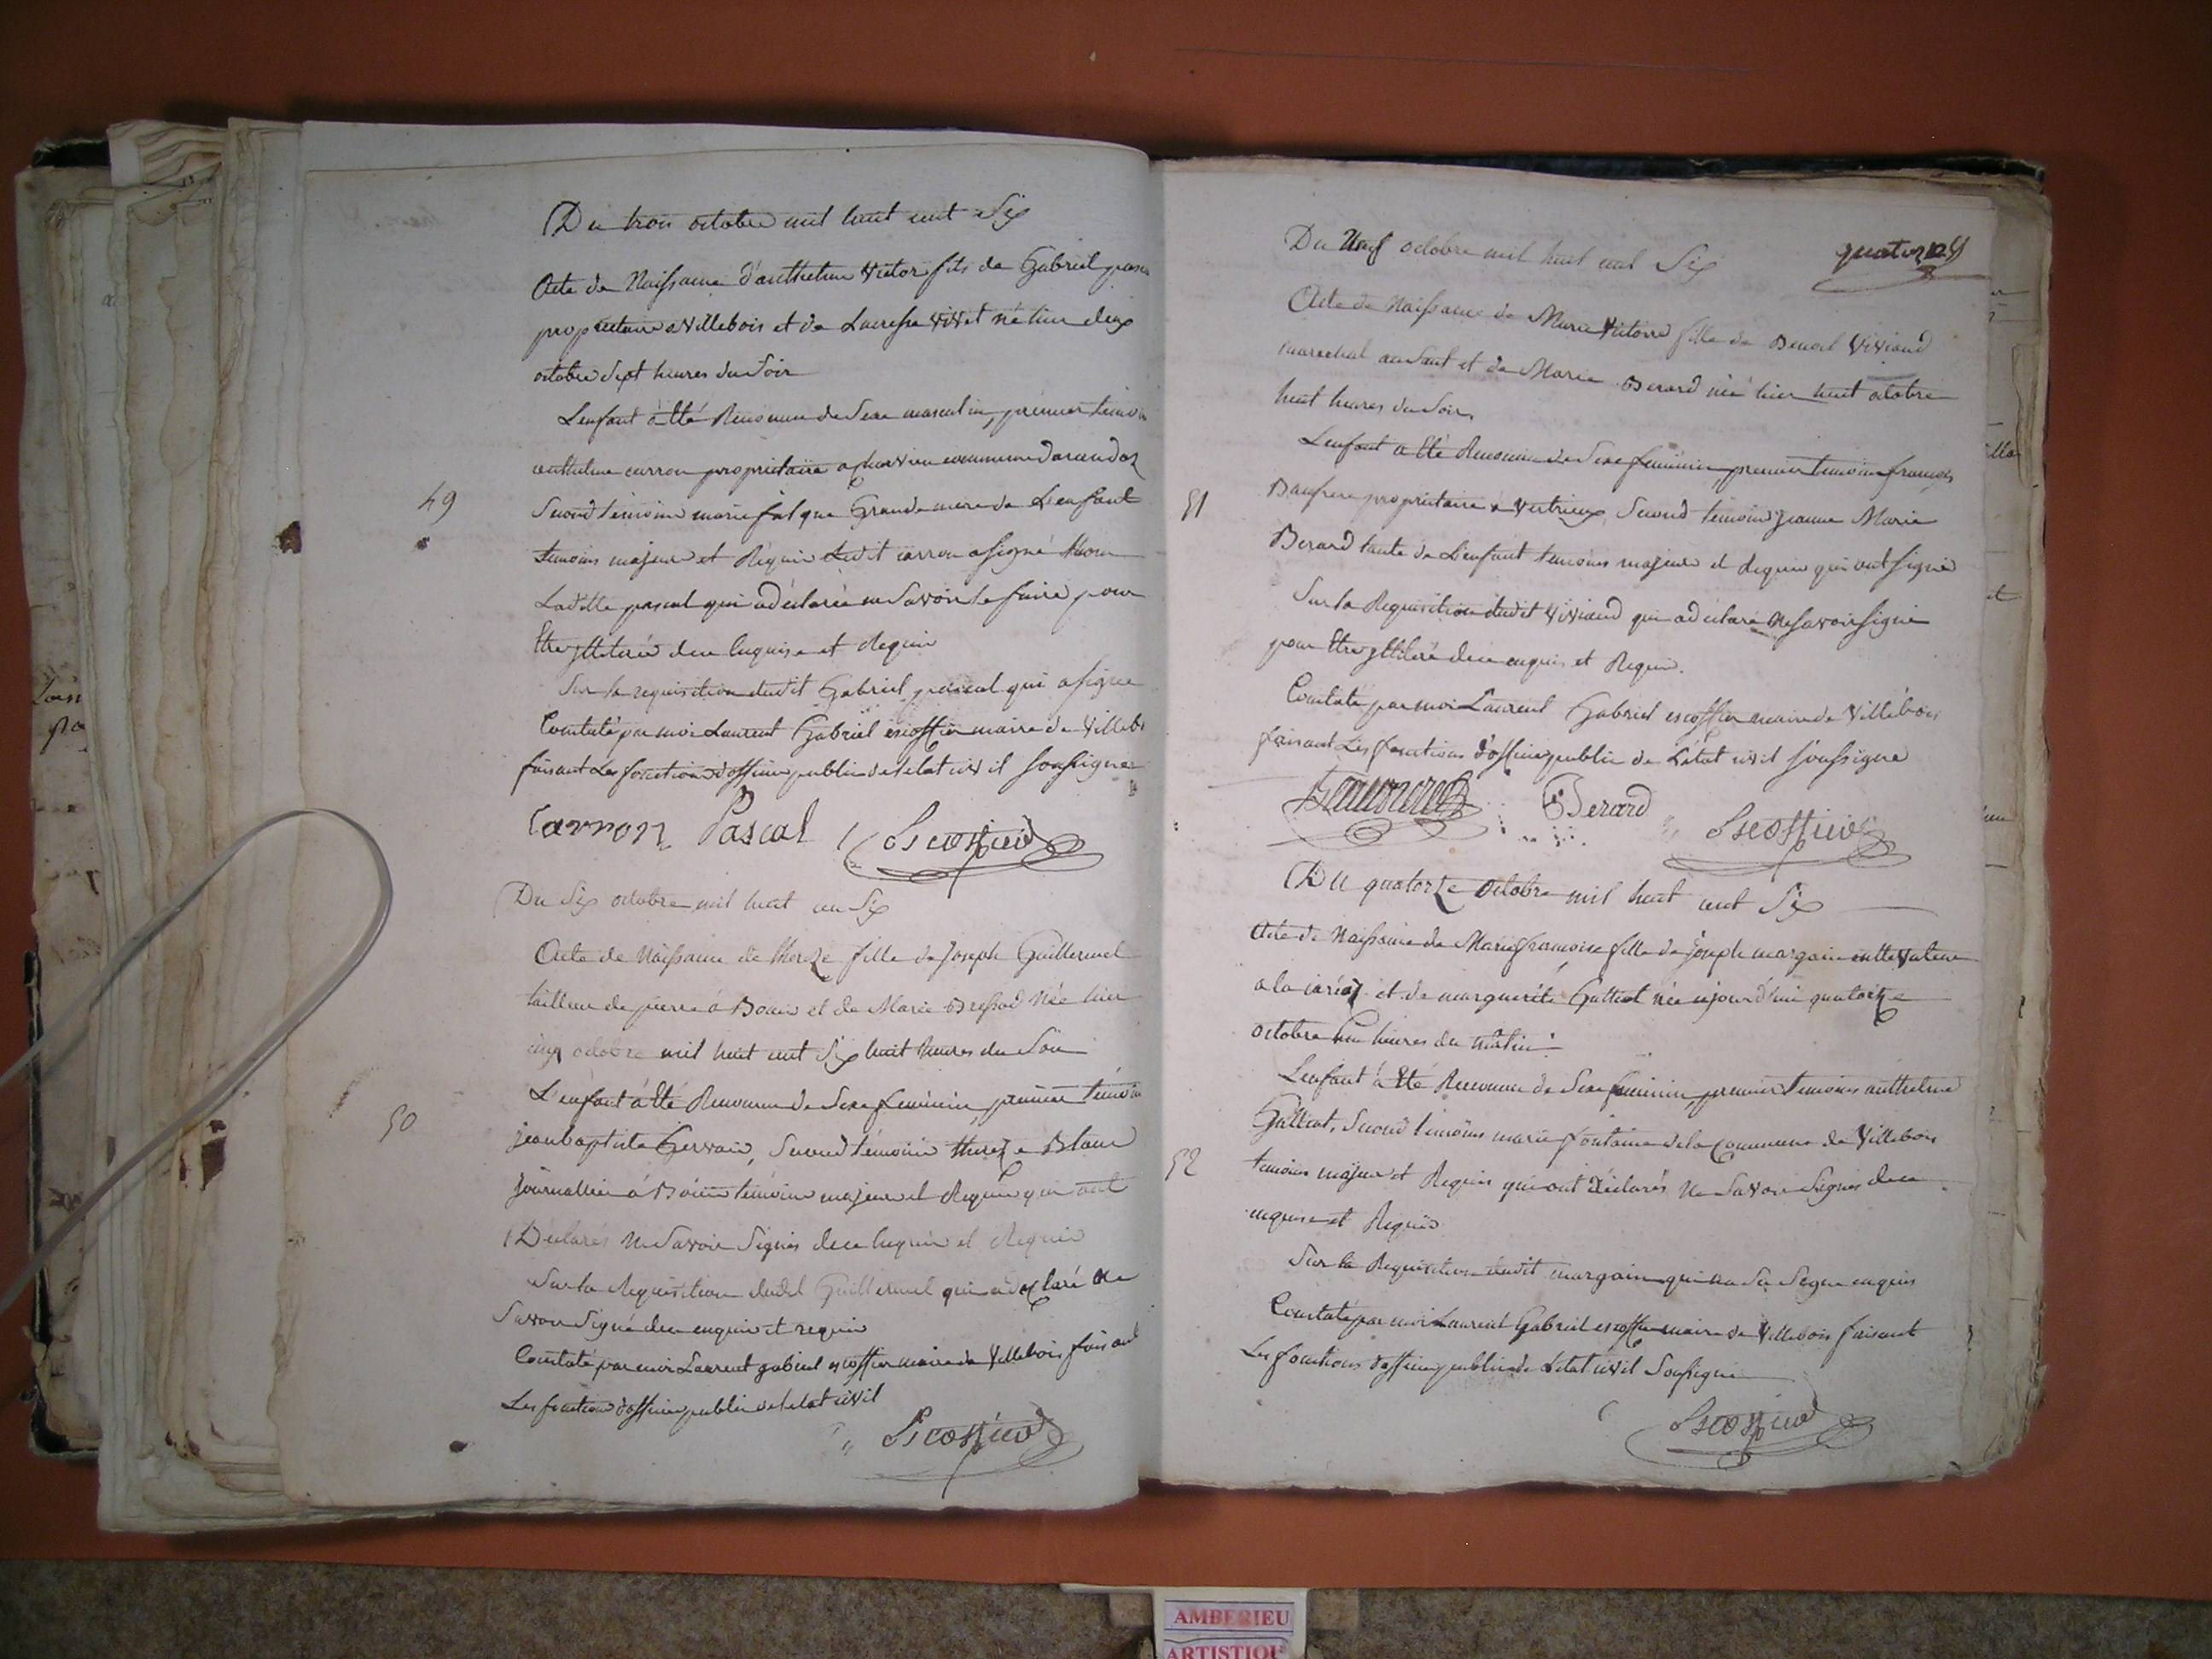 Du trois octobre mil huit cent Six
Acte de Naissance d'anthelme Victor fils de Gabriel pascal
proprietaire a Villebois et de Lucresse Vivet né hier deux
octobre Sept heures du Soir
L'enfant à Eté Reconnu de Sexe masculin, premier temoin
anthelme carron proprietaire a commune darandas
49
Second témoin marie falque Grande mere de L'enfant
temoins majeur et Réquis Ledit carron a signé Non
Laditte pascal qui a déclarée ne Savoir le faire pour
Etre jlliterée de ce Enquise et Requise
Sur la requisition dudit Gabriel pascal qui a signe
Constaté par moi Laurent Gabriel escoffier maire de Villeb
faisant Les fonctions d'officier public de letat civil Soussigne
Carron Pascal Escoffier
Du Six octobre mil huit cen Six
Acte de Naissance de thereze fille de Joseph Guillermet
tailleur de pierre à Bouis et de Marie Bressod Née hier
cinq octobre mil huit cent Six huit heures du Soir
L'enfant à Eté Reconnu de Sexe feminin, premier témoin
50
jeanbaptiste Gervais, Second témoin thereze Blanc
journallier à témoins majeur et Requis qui ont
Déclarés Ne Savoir Signés de ce Enquis et Requis
Sur la Requisition dudit Guillermet qui a déclaré Ne
Savoir Signé de ce enquis et requis
Constaté par moi Laurent gabriel escoffier maire de Villebois faisant
Les fonctions d'officier public de letat civil
Escoffier
quatorze
Du Neuf octobre mil huit cent Six
Acte de Naissance de Marie Victoire fille de Benoit Viviand
marechal au Saut et de Marie Berard née hier huit octobre
huit heures du Soir
L'enfant a Eté Reconnu de Sexe feminin, premier temoin françois
51
Baufrere proprietaire à Vertrieux, Second temoin jeanne Marie
Berard tante de L'enfant temoins majeurs et Requis qui ont signé
Sur la Requisition dudit Viviand qui a declaré Ne savoir signé
pour Etre jlliteré de ce enquis et Requis.
Constaté par moi Laurent Gabriel escoffier maire de Villebois
faisant Les fonctions d'officier public de L'état civil Soussigné
Berard Escoffier
Du quatorze Octobre mil huit cent Six
Acte de Naissance de Marie françoise fille de joseph margain culttivateur
a la et de marguerite Gattiot née cejourd'hui quatorze
octobre heures du matin
L'enfant à Eté Reconnu de Sexe feminin, premier temoin anthelme
Gattiot, Second témoins marie fontaine de la Commune de Villebois
52
temoins majeur et Requis qui ont Déclarés Ne Savoir Signés de ce
enquis et Requis
Sur la Requisition dudit margain qui na Su Signe enquis
Constaté par moi Laurent Gabriel escoffier maire de Villebois faisant
Les fonctions d'officier public de Letat civil Soussigné
Escoffier
AMBERIEU
ARTISTIQU